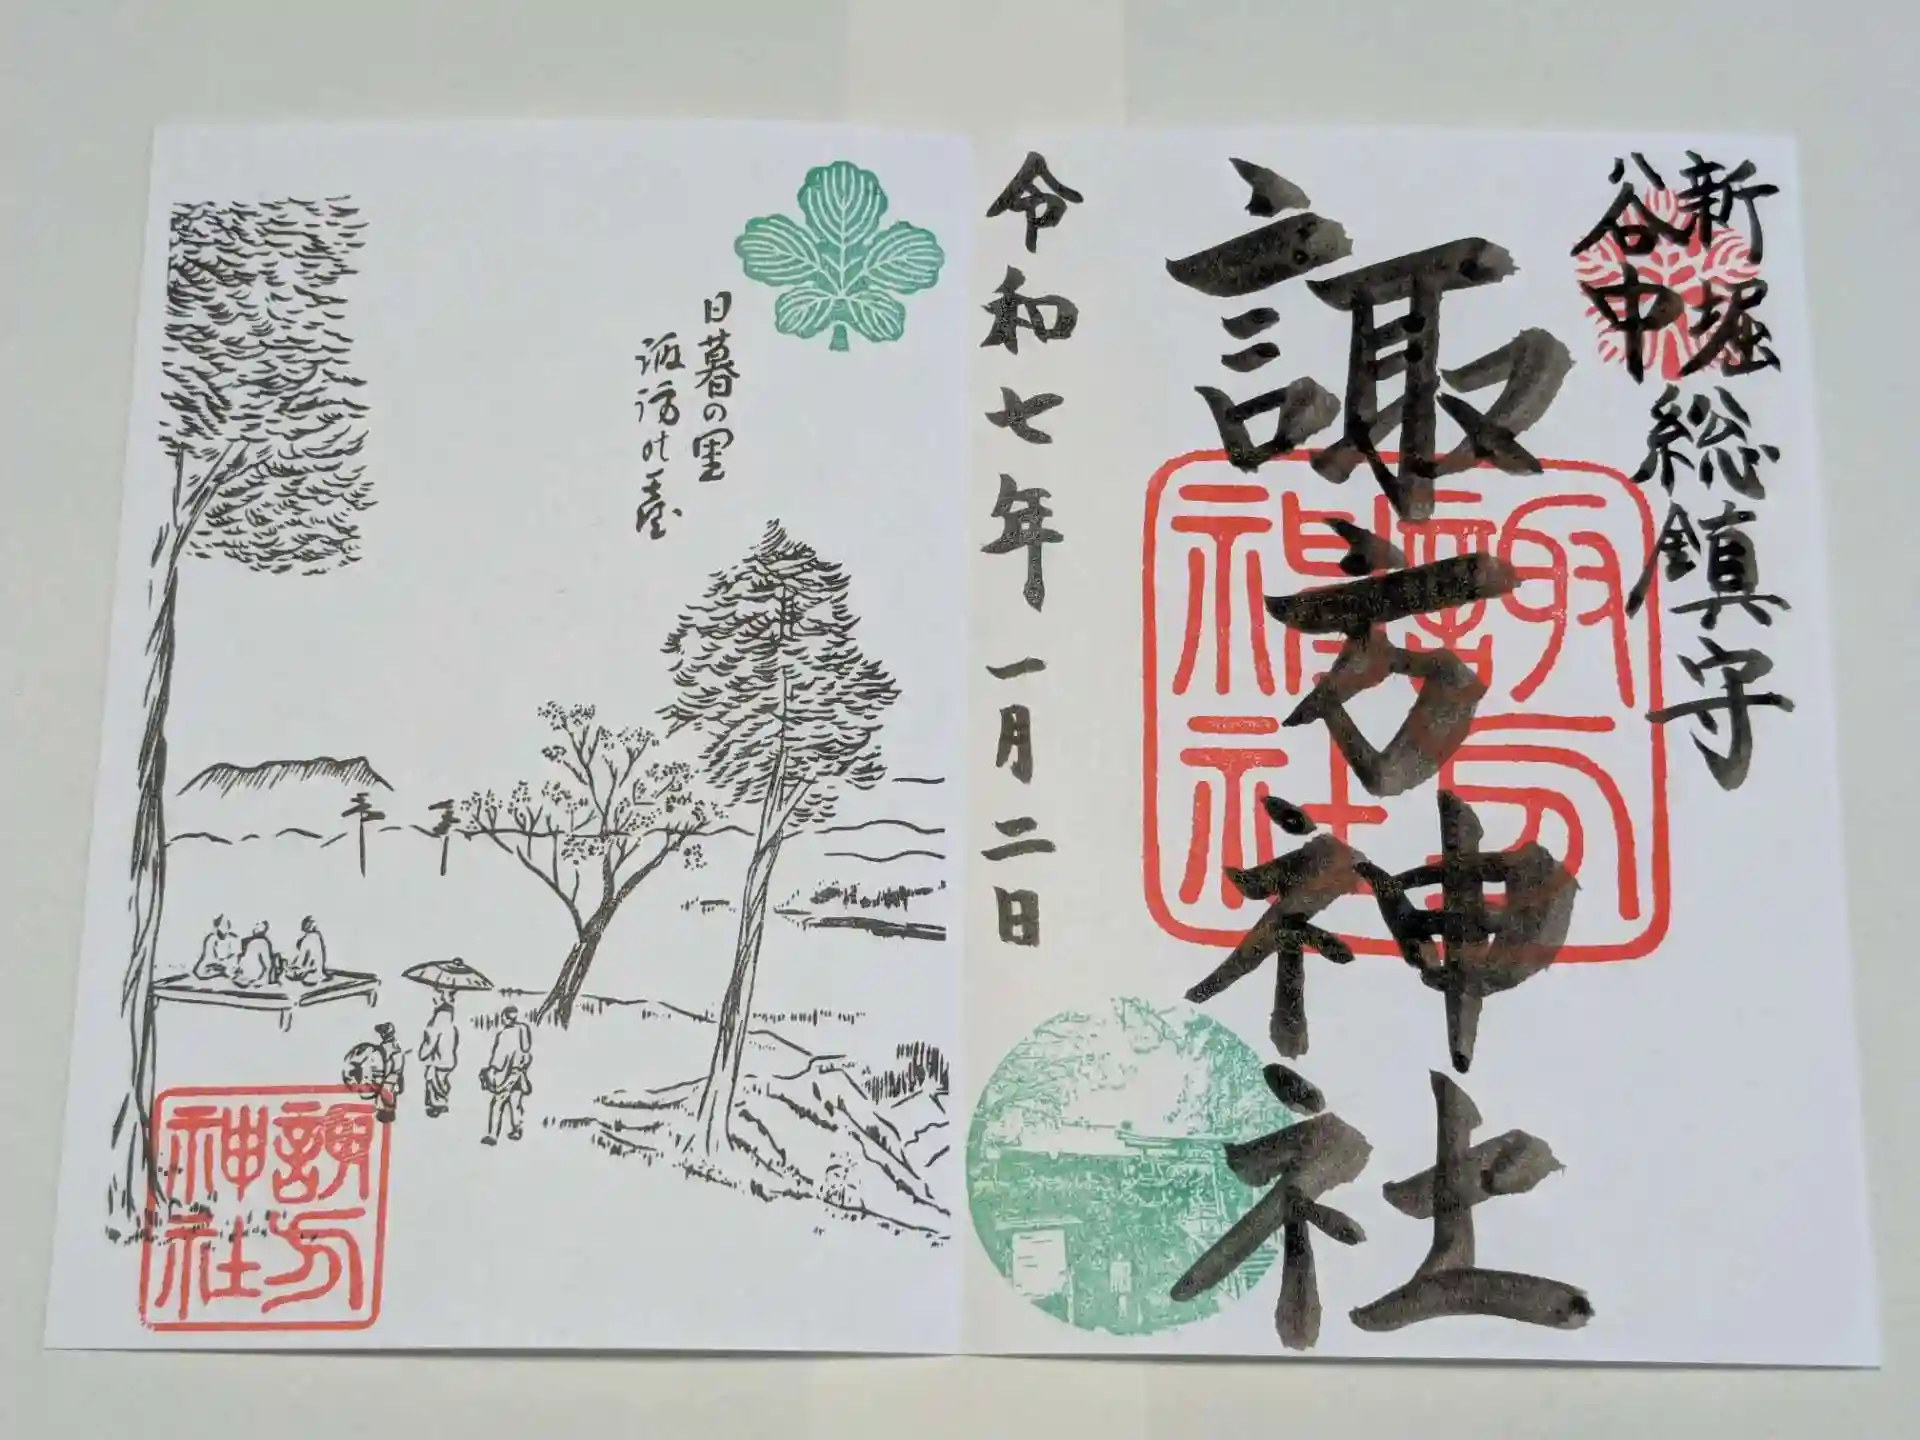 新堀
谷中
総鎮守
諏方神社
諏方神社
令和七年一月二日
日暮の里
諏訪の臺
諏方神社